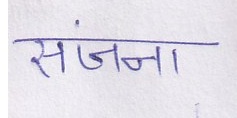 सांजना